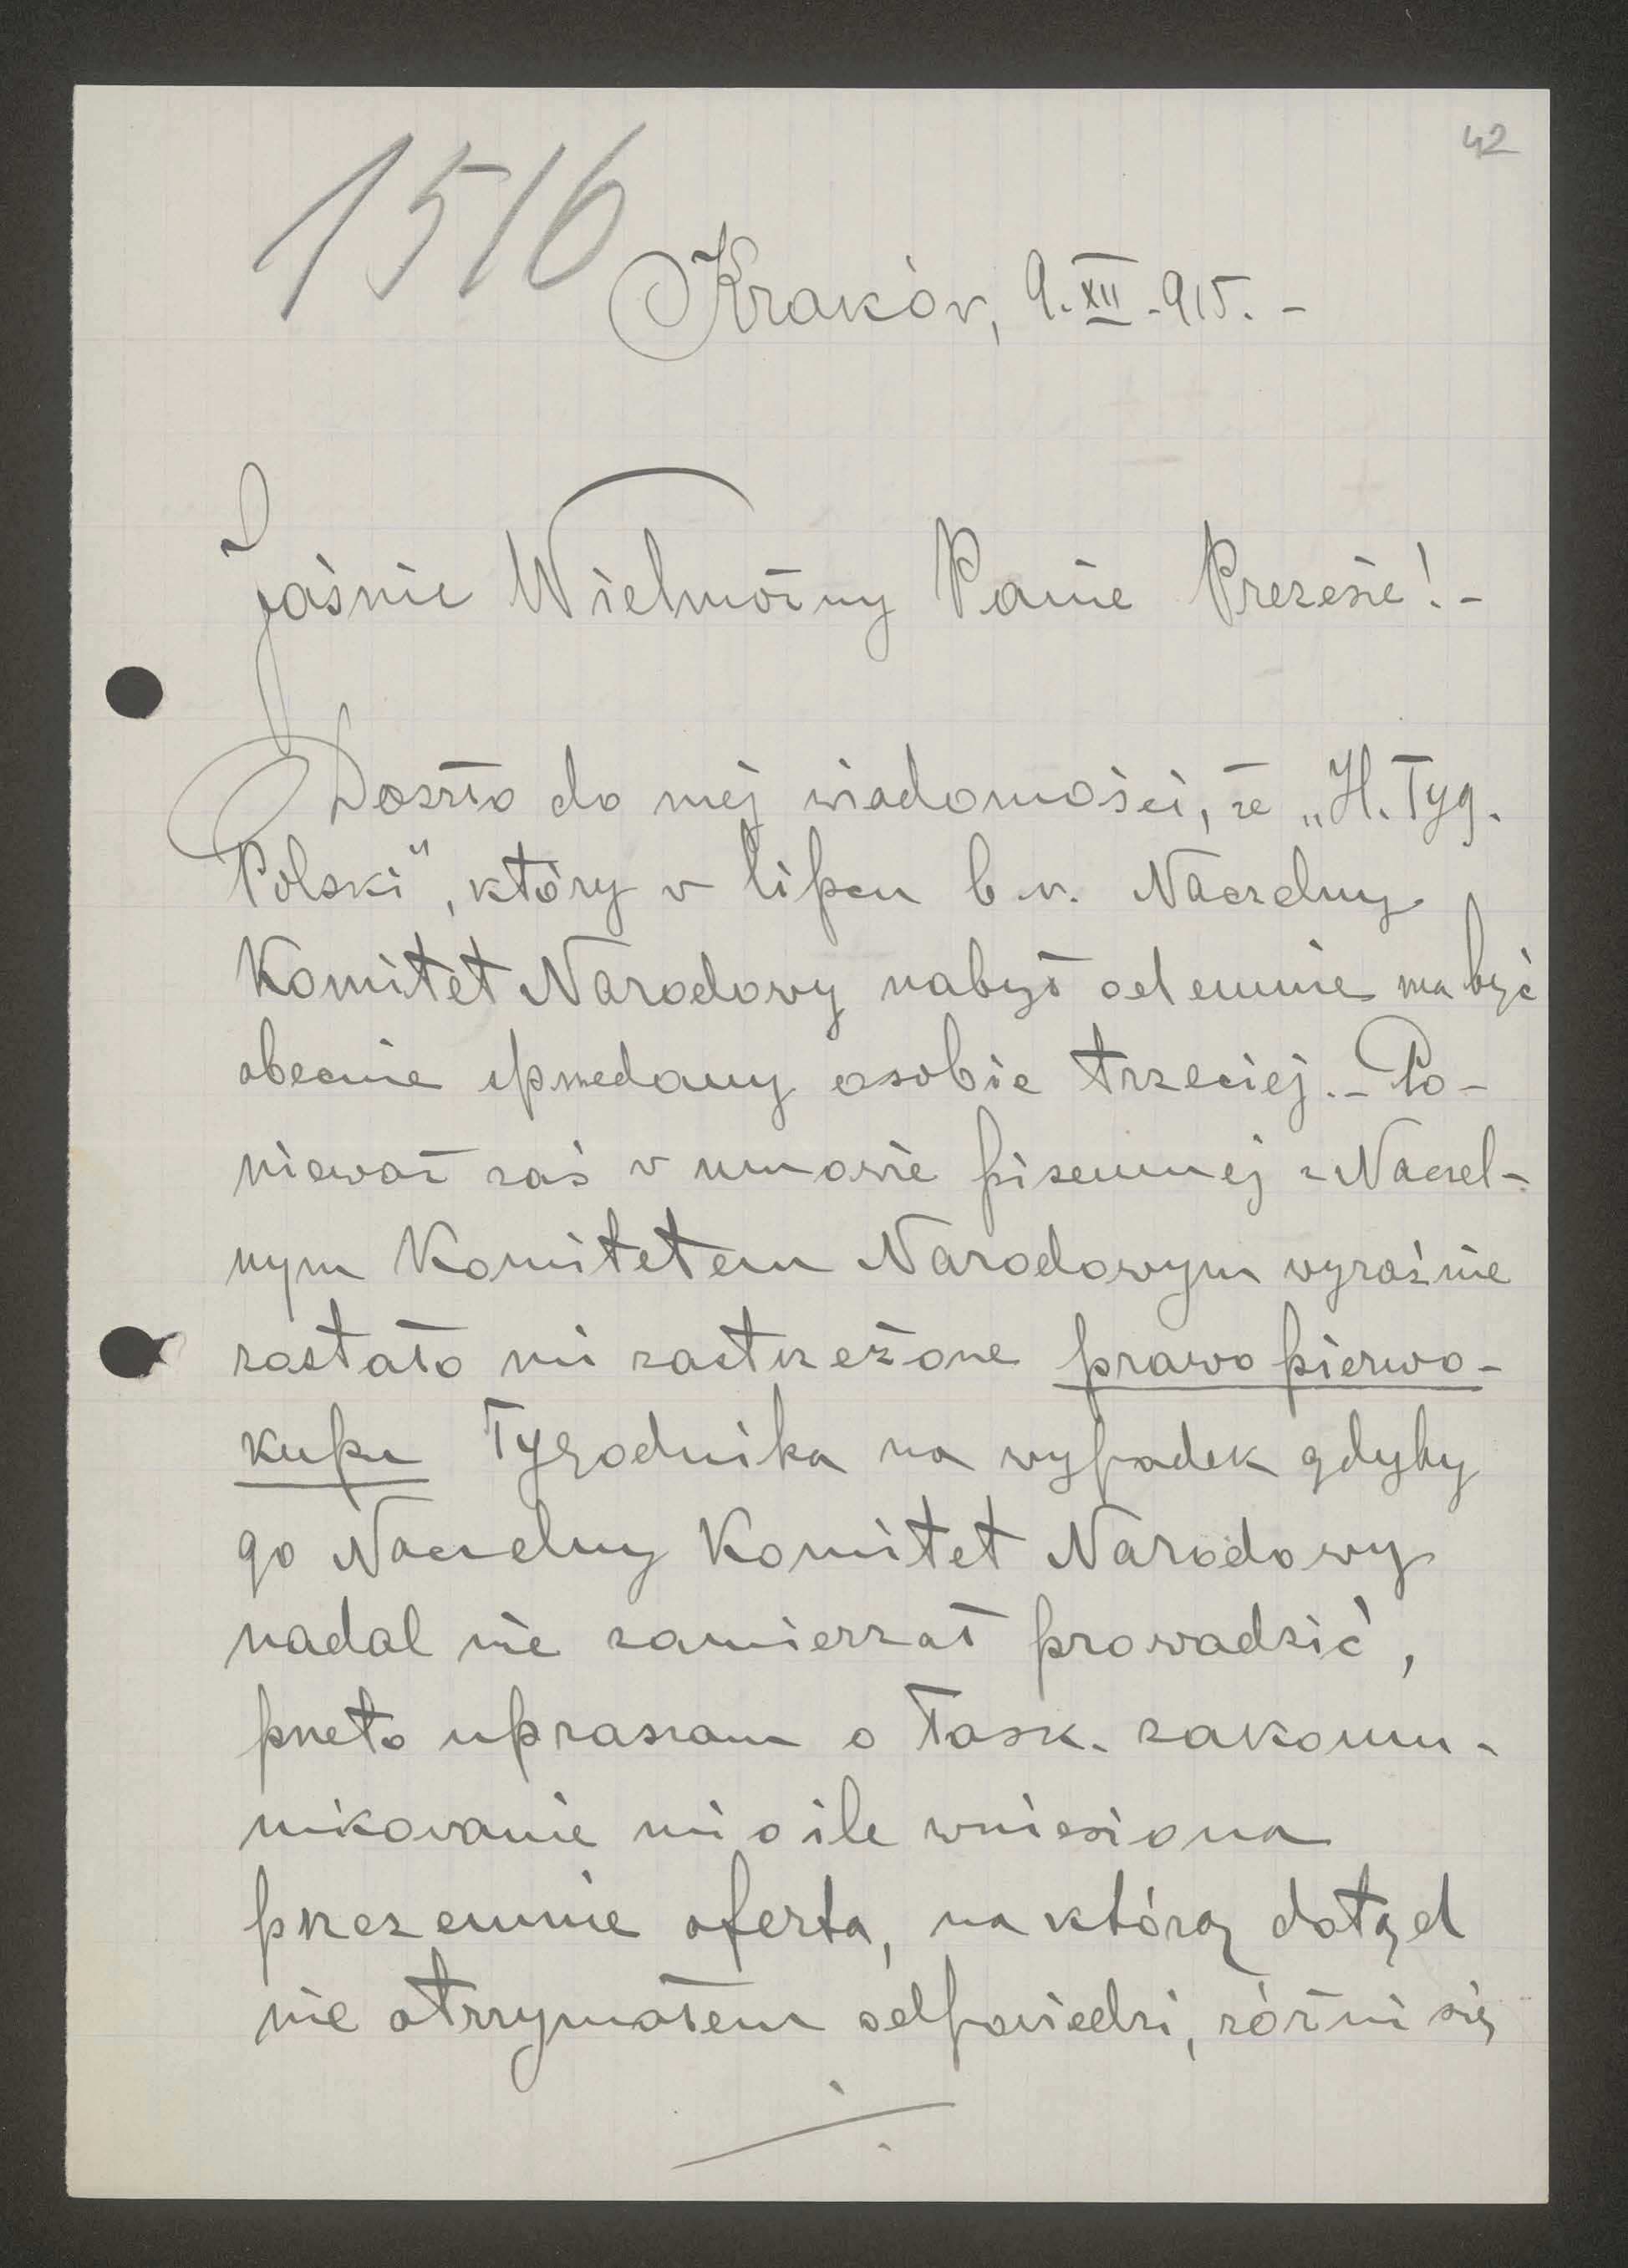 42
1516
Kraków, 9. XII - 915. -
Jaśnie Wielmożny Panie Prezesie! -
Doszło do mej wiadomości, że „Il. Tyg.
Polski", który w lipcu b. r. Naczelny
Komitet Narodowy nabył odemnie ma być
obecnie sprzedany osobie trzeciej. - Po-
nieważ zaś w umowie pisemnej z Naczel-
nym Komitetem Narodowym wyraźnie
zostało mi zastrzeżone prawo pierwo-
kupu Tygodnika na wypadek gdyby
go Naczelny Komitet Narodowy
nadal nie zamierzał prowadzić,
przeto upraszam o łask. zakomu-
nikowanie mi o ile wniesiona
przezemnie oferta, na którą dotąd
nie otrzymałem odpowiedzi, różni się